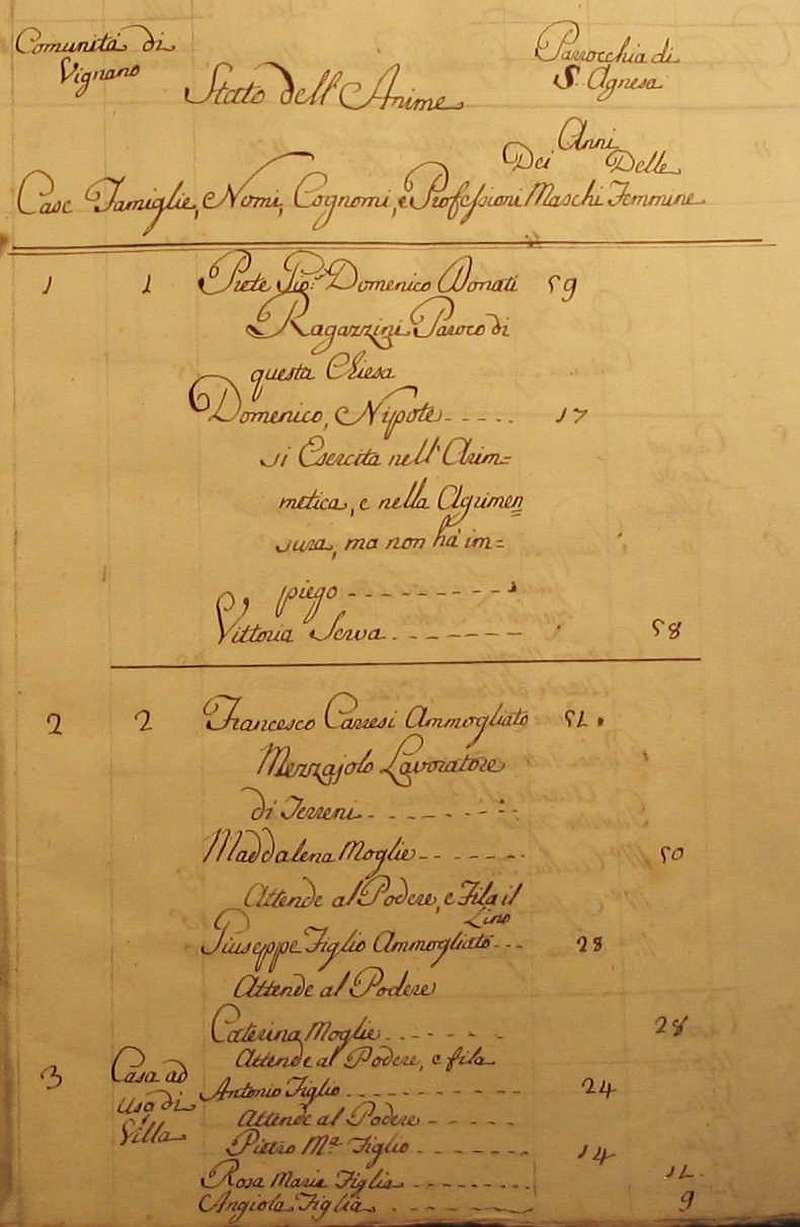 Comunità di
Vignano
Stato dell'Anime
Parrocchia di
S. Agnesa
Anni
Dei Delle
Case Famiglie, Nomi, Cognomi, e Professioni Maschi Femmine
1 1 Prete Domenico Donati 59
Ragazzini Paroco di
questa Chiesa
Domenico, Nipote 17
si Esercita nell'Arim=
metica, e nella Agrimen=
sura, ma non hà im=
piego
Vittoria Serva 58
2 2 Francesco Ammogliato
Mezzajolo Lavoratore
di Terreni
Maddalena Moglie 50
Attende al Podere, e Fila il
Lino
Giuseppe Figlio Ammogliato 28
Attende al Podere
Caterina Moglie
Attende al Podere, e fila
3 Casa ad
uso di
Villa
Antonio Figlio 24
Attende al Podere
Pietro M.ª Figlio 14
Rosa Maria Figlia
Angiola Figlia 9